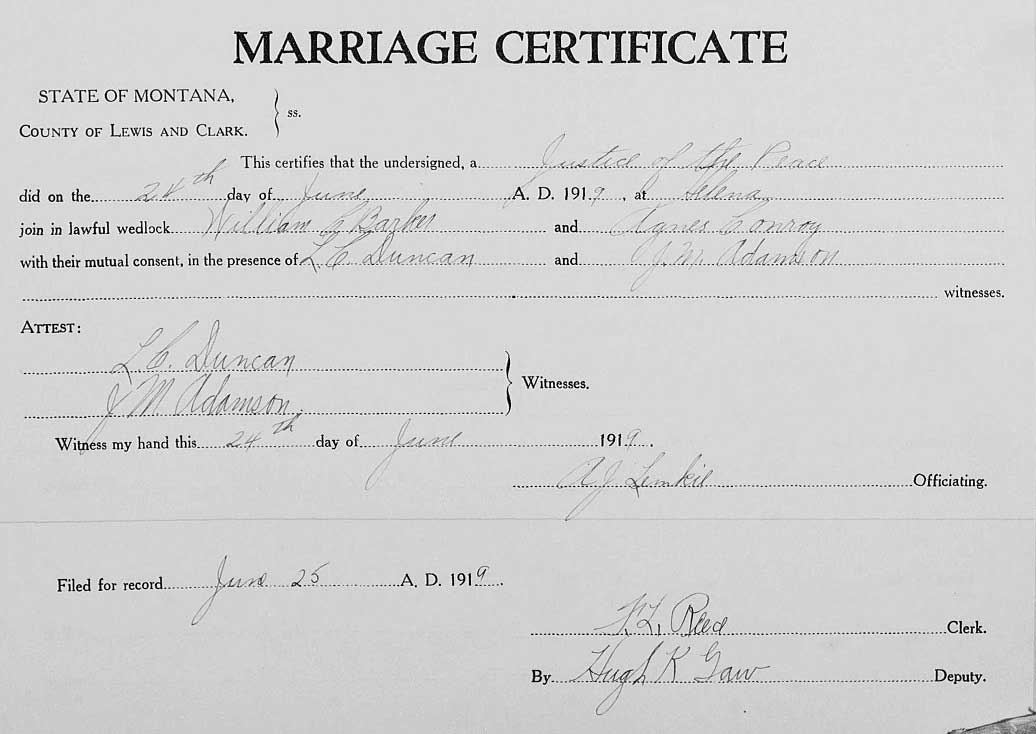 MARRIAGE CERTIFICATE
STATE OF MONTANA,
COUNTY OF LEWIS AND CLARK. } ss.
This certifies that the undersigned, a Justice of the Peace
did on the 24th day of June A. D. 1919, at Helena
join in lawful wedlock William C Barber and Agnes Conroy
with their mutual consent, in the presence of L. C. Duncan and J. M. Adamson
witnesses.
ATTEST:
L. C. Duncan
J M Adamson
Witnesses.
Witness my hand this 24th day of June 1919.
A J Officiating.
Filed for record June 25 A. D. 1919.
Reed Clerk.
By Hugh K Gaw Deputy.